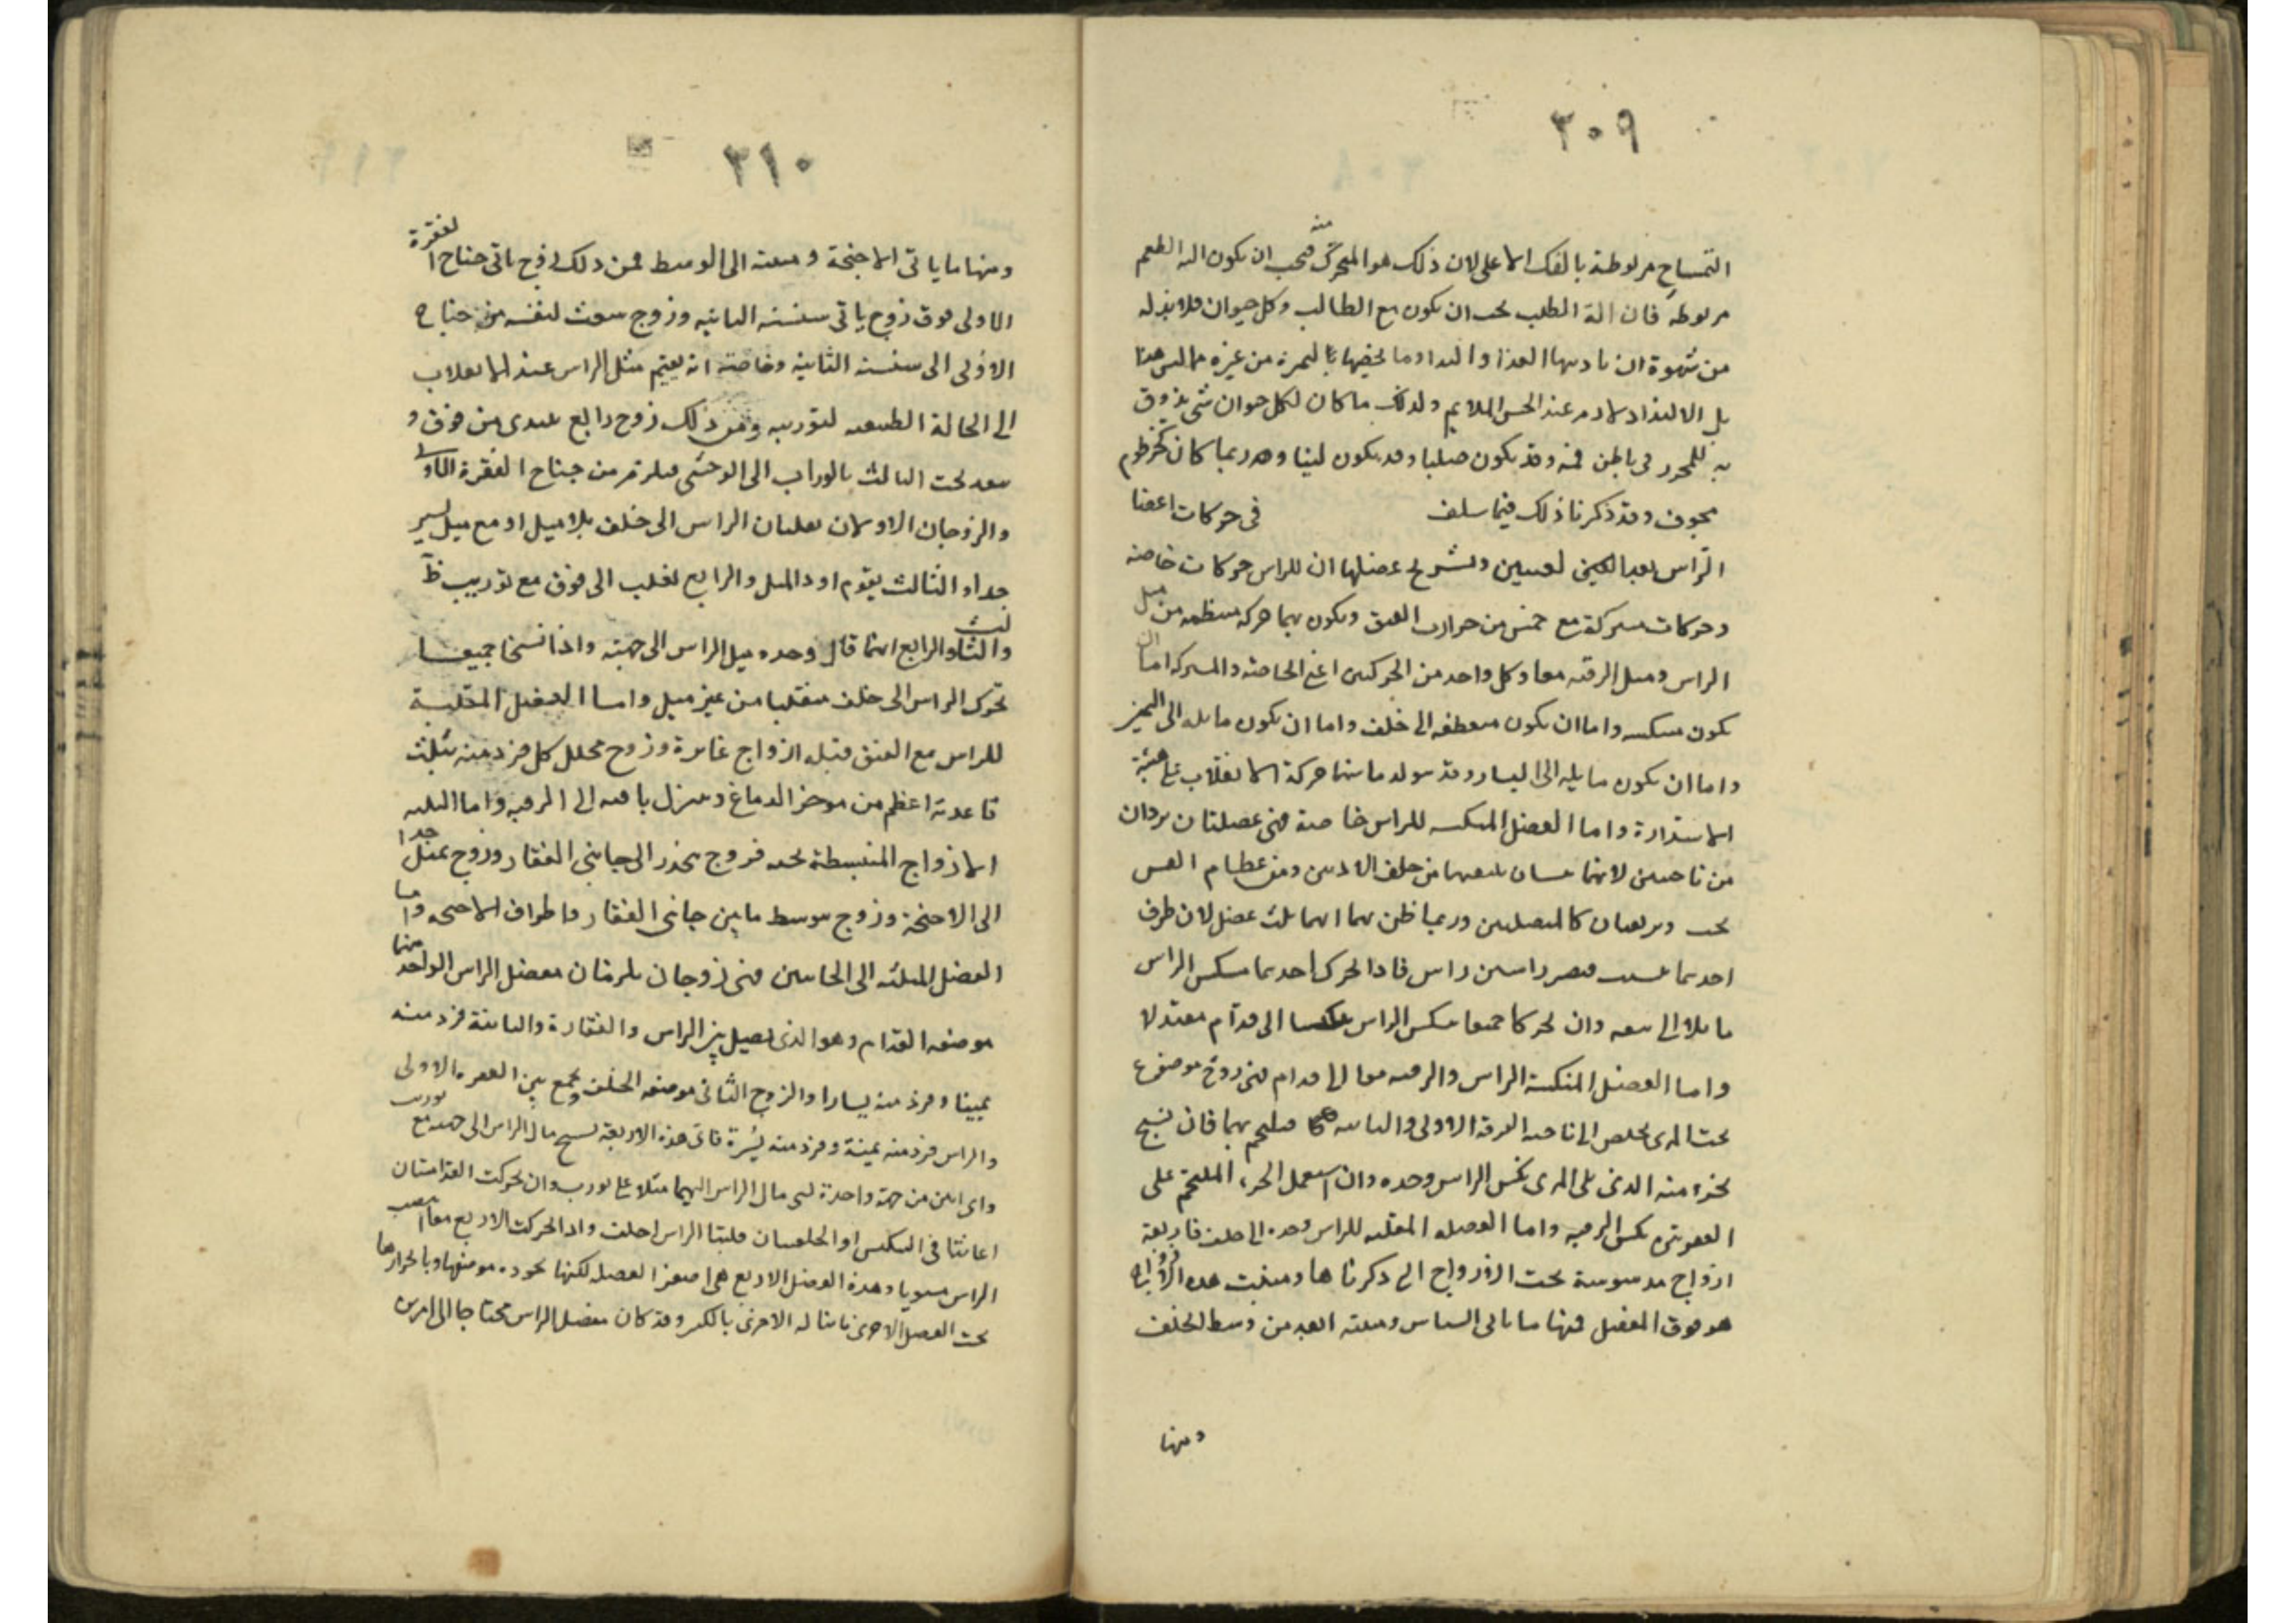 ٣٠٩
التمساح مربوطة بالفك الاعلى لان ذلك هو المتحرك منه فيجب ان يكون الة الطعم
مربوطة فان الة الطلب يجب ان يكون مع الطالب وكل حيوان فلا بد له
من شهوة ان نادتها الغذا والتداد وما يخصها من غيره
بل الالتذاذ لازم عند الحس الملايم ولذلك ما كان لكل حيوان شى يذوق
به فى باطن فمه وقد يكون صلبا وقد يكون لينا وربما كان كخرطوم
مجوف وقد ذكرنا ذلك فيما سلف فى حركات اعضا
الراس وتشريح عضلها ان للراس حركات خاصة
وحركات مشتركة مع خمس من خرزات العنق ويكون بها حركة منتظمة من ميل
الراس وميل الرقبة معا وكل واحد من الحركتين اعنى الخاصة والمشتركة اما ان
يكون منتكسه واما ان يكون منعطفه الى خلف واما ان يكون مايله الى اليمين
واما ان يكون مايله الى اليسار وقد يتولد ما بينها حركة الانقلاب على هيئة
الاستدارة واما العضل المنكسه للراس خاصة فهى عضلتان تردان
من ناحيتين لانهما من خلف الاذنين ومن عظام القس
تحت ويرتقيان كالمتصلتين وربما ظن بهما انهما ثلث عضل لان طرف
احدهما يتشعب فيصير راسين راس فاذا تحرك احدهما تنكس الراس
مايلا الى شقه وان تحركا جميعا تنكس الراس الى قدام معتدلا
واما العضل المنكسة الراس والرقبه معا الى قدام فهى زوج موضوع
تحت المرى يخلص الى ناحيه الفقرة الاولى والثانيه فيلتحم بهما فان تشنج
بجزء منه الذى يلى المرى نكس الراس وحده وان استعمل الجزء الملتحم على
الفقرتين نكس الرقبه واما العضله المقلبه للراس وحده الى خلف فاربعة
ازواج مدسوسة تحت الازواج التى ذكرناها ومنبت هذه الازواج
هو فوق المفصل فمنها ما ياتى السناسن ومنبته ابعد من وسط الخلف
ومنها
٣١٠
ومنها ما ياتى الاجنحة ومنبته الى الوسط فمن ذلك زوج ياتى جناح الفقرة
الاولى فوق زوج ياتى سنسنه الثانيه وزوج ينبعث لنفسه من جناح
الاولى الى سنسنة الثانية وخاصته انه يقيم ميل الراس عند الانقلاب
الى الحالة الطبيعيه لتوريبه ومن ذلك زوج رابع يبتدى من فوق و
ينفد تحت الثالث بالوراب الى الوحشى فيلزم جناح الفقرة الاولى
والزوجان الاولان يقلبان الراس الى خلف بلا ميل او مع ميل يسير
جدا والثالث يقوم اود الميل والرابع يقلب الى فوق مع توريب ظ
والثالث والرابع ايهما مال وحده ميل الراس الى جهته واذا تشنجا جميعا
تحرك الراس الى خلف منقلبا من غير ميل واما العضل المقلبة
للراس مع العنق فثلثه ازواج غايرة وزوج مجلل كل فرد منه مثلث
قاعدته اعظم من موخر الدماغ وينزل باقيه الى الرقبه واما الثلثه
الازواج المنبسطة تحته فزوج ينحدر الى جانبى الفقار وزوج يميل جدا
الى الاجنحة وزوج يتوسط ما بين جانبى الفقار واطراف الاجنحه واما
العضل المميله الى الجانبين فهى زوجان يلزمان مفصل الراس الواحد منها
موضعه القدام وهو الذى يصل بين الراس والفقارة والثانية فرد منه
يمينا وفرد منه يسارا والزوج الثانى موضعه الخلف ويجمع بين الفقره الاولى
والراس فرد منه يمنة وفرد منه يسرة فاى هذه الاربعة تشنج مال الراس الى جهته مع توريب
واى اثنين من جهة واحدة تشنجا مال الراس اليهما ميلا غير مورب وان تحركت القداميتان
اعانتا فى التنكيس او الخلفيتان قلبتا الراس الى خلف واذا تحركت الاربع معا انتصب
الراس مستويا وهذه العضل الاربع هى اصغر العضل لكنها بجودة موضعها وبانحرازها
تحت العضل الاخرى ما يناله الاخرى بالكبر وقد كان مفصل الراس محتاجا الى امرين